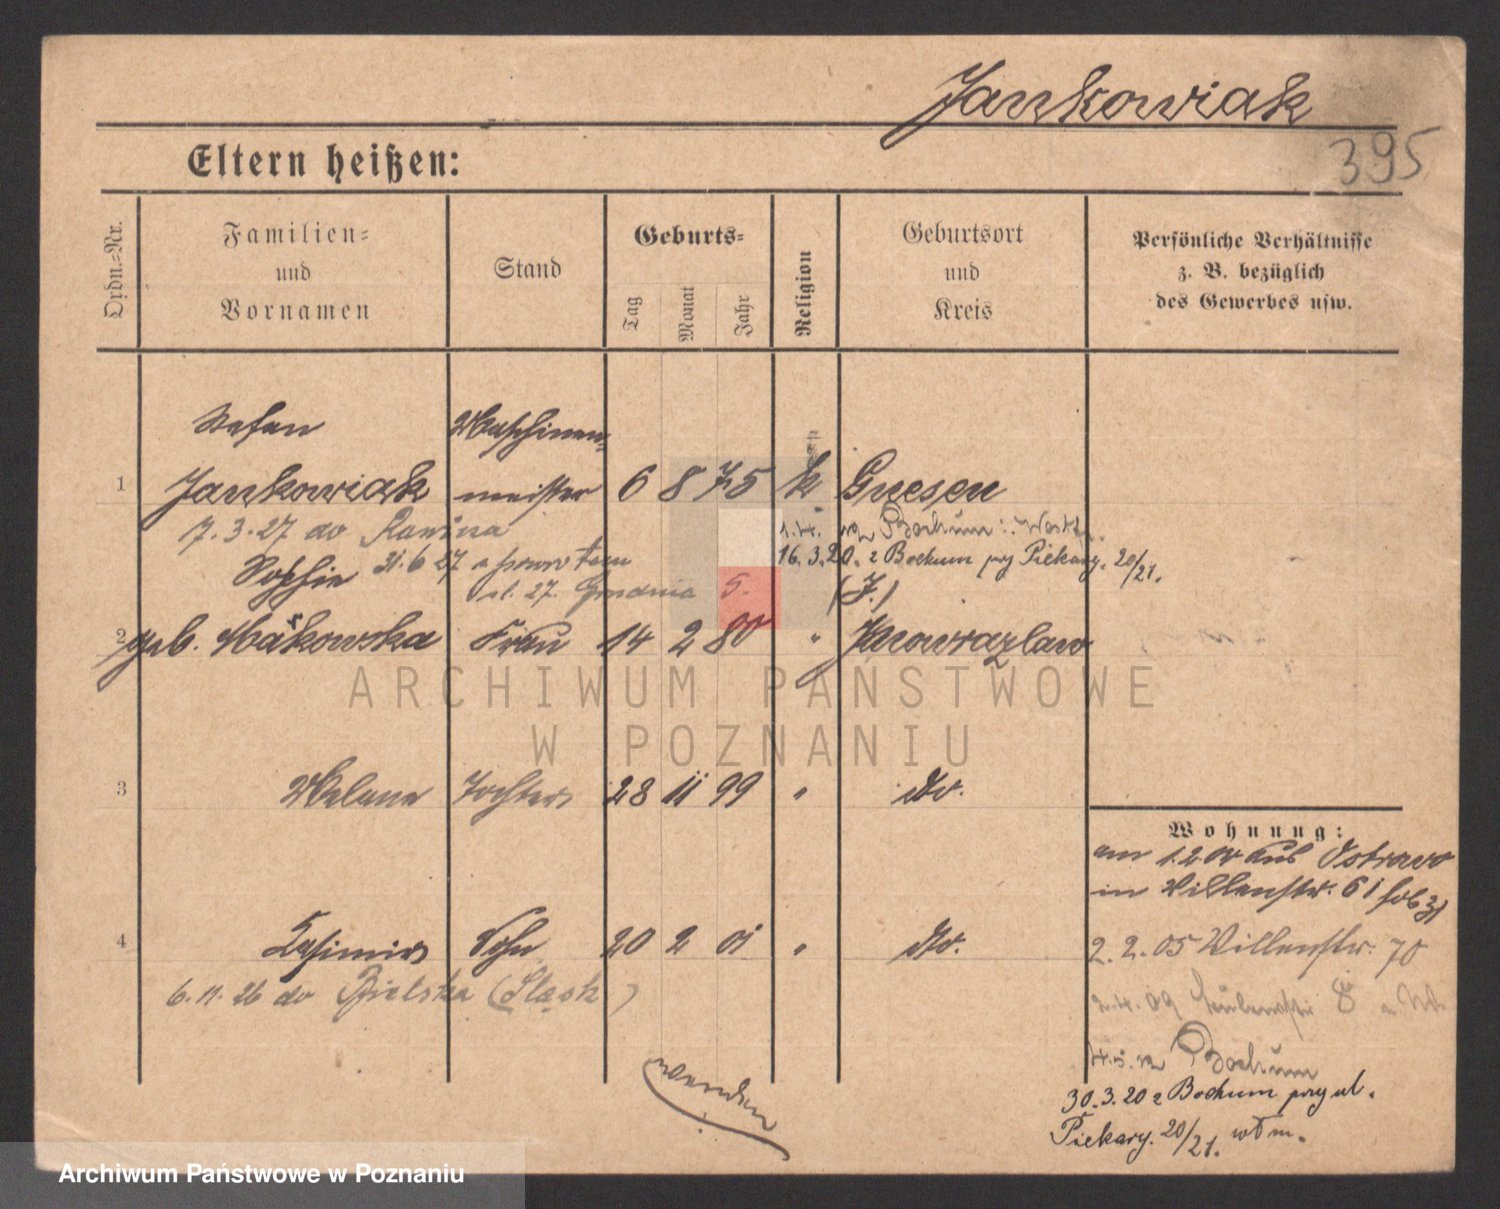 Jankowiak
395
Eltern heißen:
Ordn.=Nr.
Familien=
und
Vornamen
Stand
Geburts=
Tag
Monat
Jahr
Religion
Geburtsort
und
Kreis
Persönliche Verhältnisse
z. B. bezüglich
des Gewerbes usw.
Stefan Maschinen=
1 Jankowiak meister 6 8 75 k Gnesen
7.3.27 do Rawicza
Bochum:
16.3.20. z Bochum przy Piekary. 20/21.
Sophie 21.6 27 z powrotem
ul. 27. Grudnia 5.
(J.)
2 geb. Makowska Frau 14 2 80 " Inowrazlaw
3 Melane Tochter 28 11 99 " do.
4 Kasimir Sohn 20 2 01 " do.
6.11.26 do Bielska (Śląsk)
Wohnung:
am 1.2 04 aus Ostrowo
in Villenstr. 61
2.2.05 Villenstr. 70
2.4.09 8
Bochum
30.3.20 z Bochum przy ul.
Piekary. 20/21. wł m.
wenden
ARCHIWUM PAŃSTWOWE
W POZNANIU
Archiwum Państwowe w Poznaniu